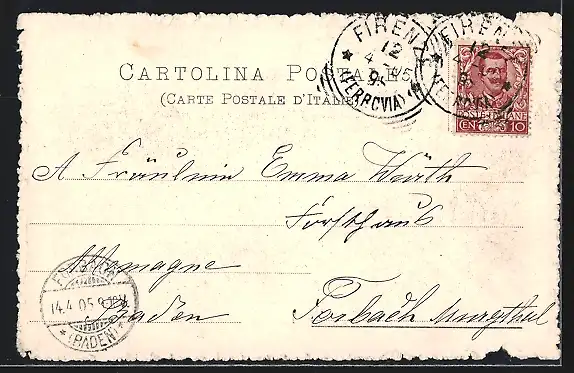 FIRENZE
12
4 - 05
9S
(FERROVIA)
FIRENZE
12
POSTE ITALIANE
CENT. 10
CARTOLINA POSTALE
(CARTE POSTALE D'ITALIE)
A Fräulein Emma Wörth
Forsthaus
Allemagne
Baden
Forbach Murgthal
FORBACH
14.4.05.9
(BADEN)